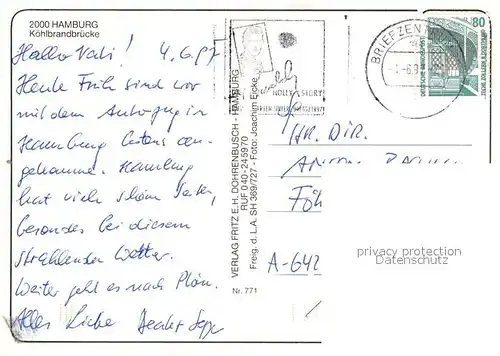 2000 HAMBURG
Köhlbrandbrücke
Hallo Vati! 4.6.97
Heute Früh sind wir
mit dem Autozug in
Hamburg bestens an-
gekommen. Hamburg
hat viele schöne Seiten,
besonders bei diesem
strahlenden Wetter.
Weiter geht es nach Plön.
Alles Liebe
VERLAG FRITZ E.H. DOHRENBUSCH - HAMBURG
RUF 040-245970
Freig. d. L.A. SH 369/727 - Foto: Joachim Eicke
Nr. 771
Buddy
HOLLY STORY
BRIEFZENTRUM
80
DEUTSCHE BUNDESPOST
HR. DIR.
A-642
privacy protection
Datenschutz